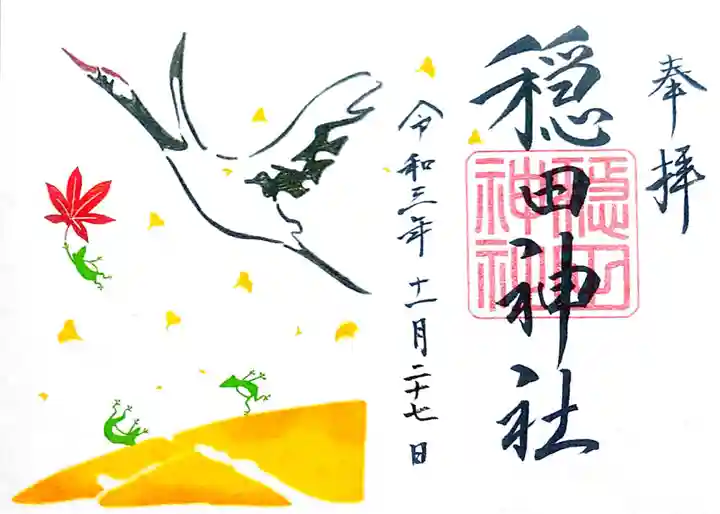 奉拝
穏田神社
穏田神社
令和三年十一月二十七日